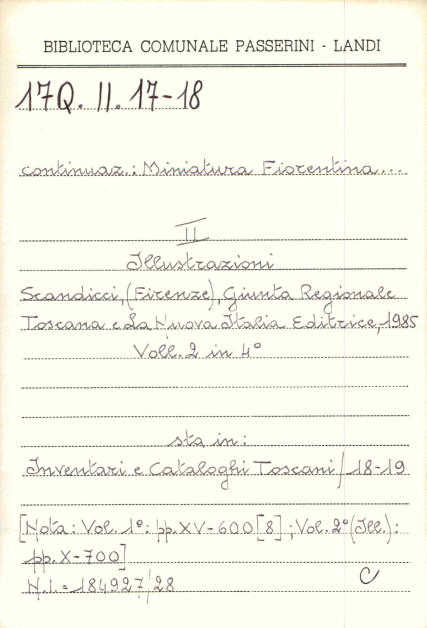 BIBLIOTECA COMUNALE PASSERINI - LANDI
17Q. II. 17-18
continuaz.: Miniatura Fiorentina...
II
Illustrazioni
Scandicci, (Firenze), Giunta Regionale
Toscana e La Nuova Italia Editrice, 1985
Voll. 2 in 4°
sta in:
Inventari e Cataloghi Toscani / 18-19
[Nota: Vol. 1º: pp. XV-600 [8] ; Vol. 2º (Ill.):
pp. X-700]
N.I. = 184927/28
C